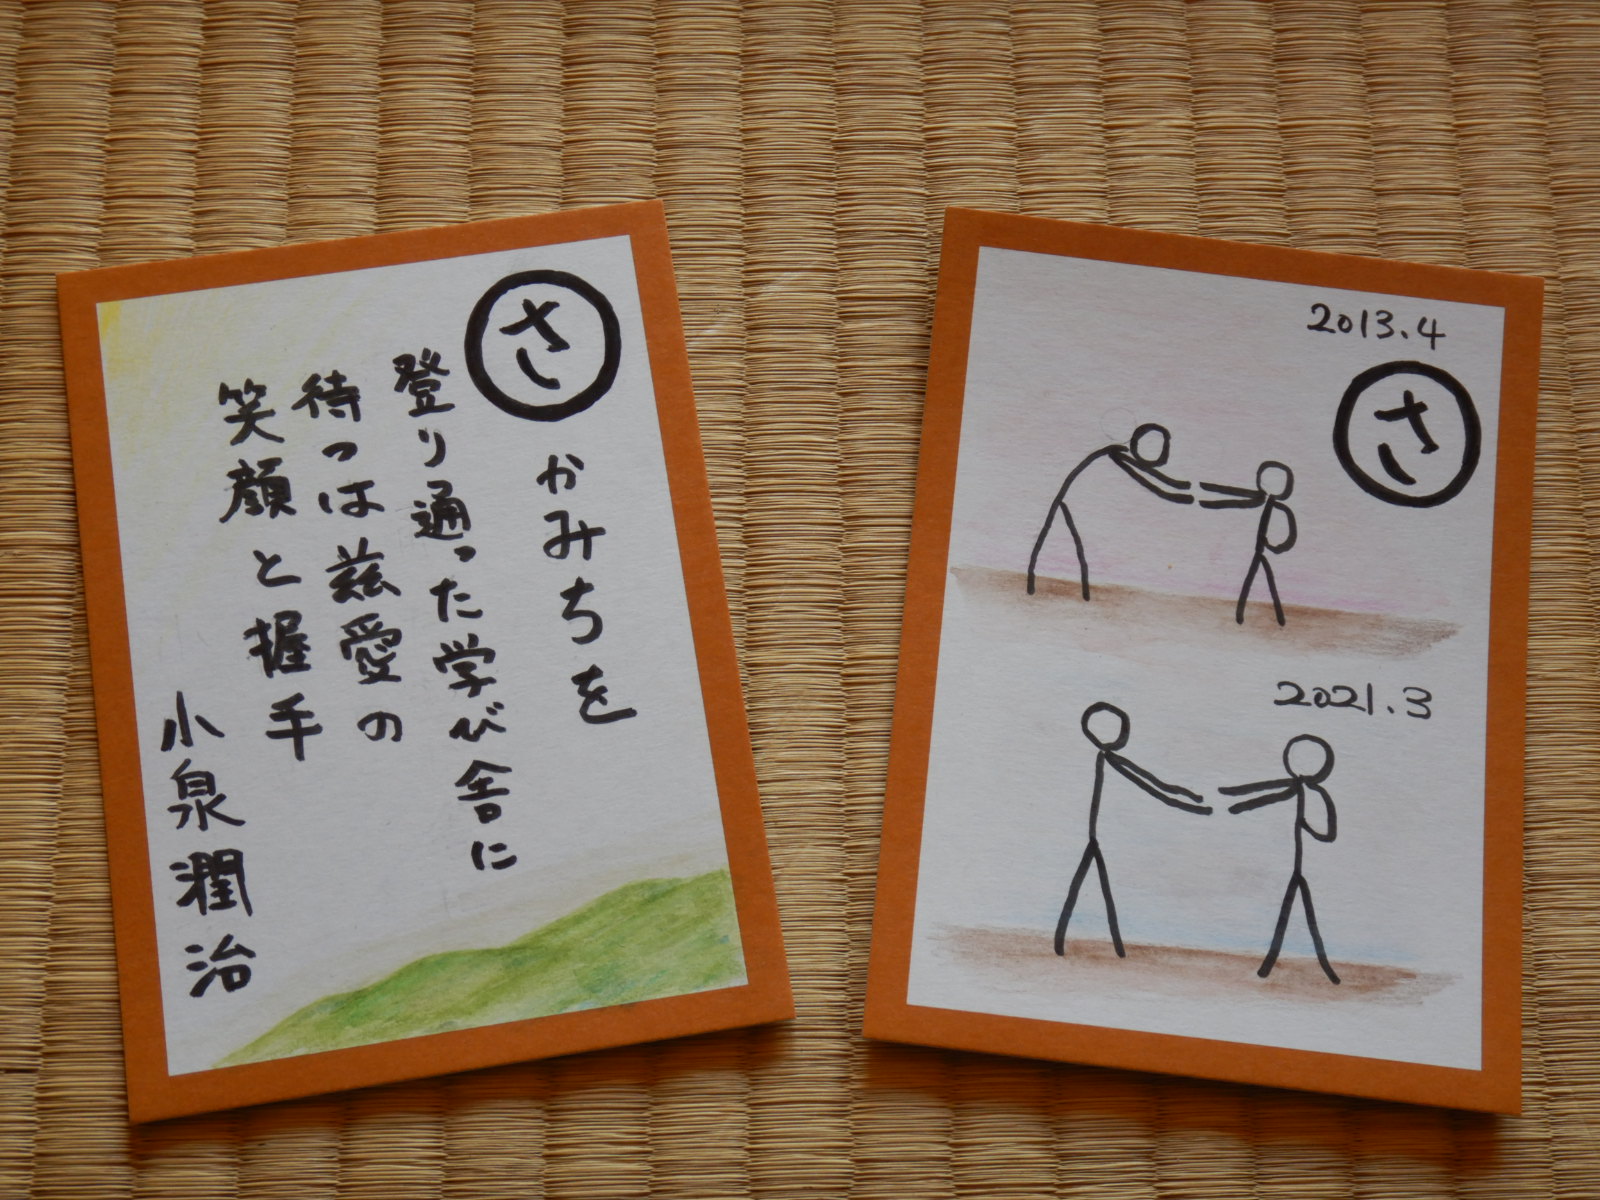 さ
かみちを
登り通った学び舎に
待つは慈愛の
笑顔と握手
小泉潤治
2013.4
さ
2021.3